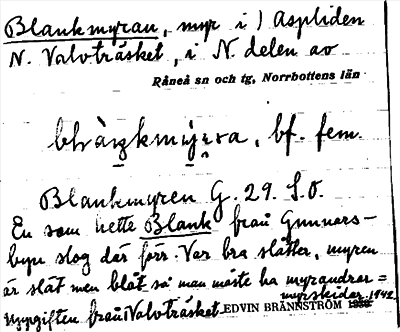 Blankmyran, myr i ) Aspliden
N. Valvträsket, i N. delen av
Råneå sn och tg, Norrbottens län
bf. fem.
Blankmyren G. 29. S.O.
En som hette Blank från Gunnars-
byn slog där förr. Var bra slåtter, myren
är slät men blöt så man måste ha myrandrar =
myrskidor. 1942.
Uppgiften från N Valvträsket. EDVIN BRÄNNSTRÖM